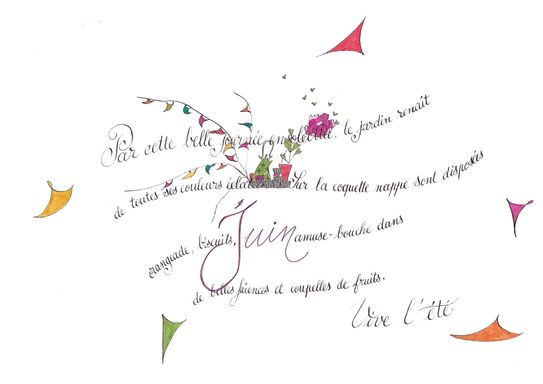 Par cette belle journée ensoleillé, le jardin renaît
de toutes ses couleurs Sur la coquette nappe sont disposées
orangeade, biscuits, Juin amuse-bouche dans
de belles faïences et coupelles de fruits.
Vive l'été